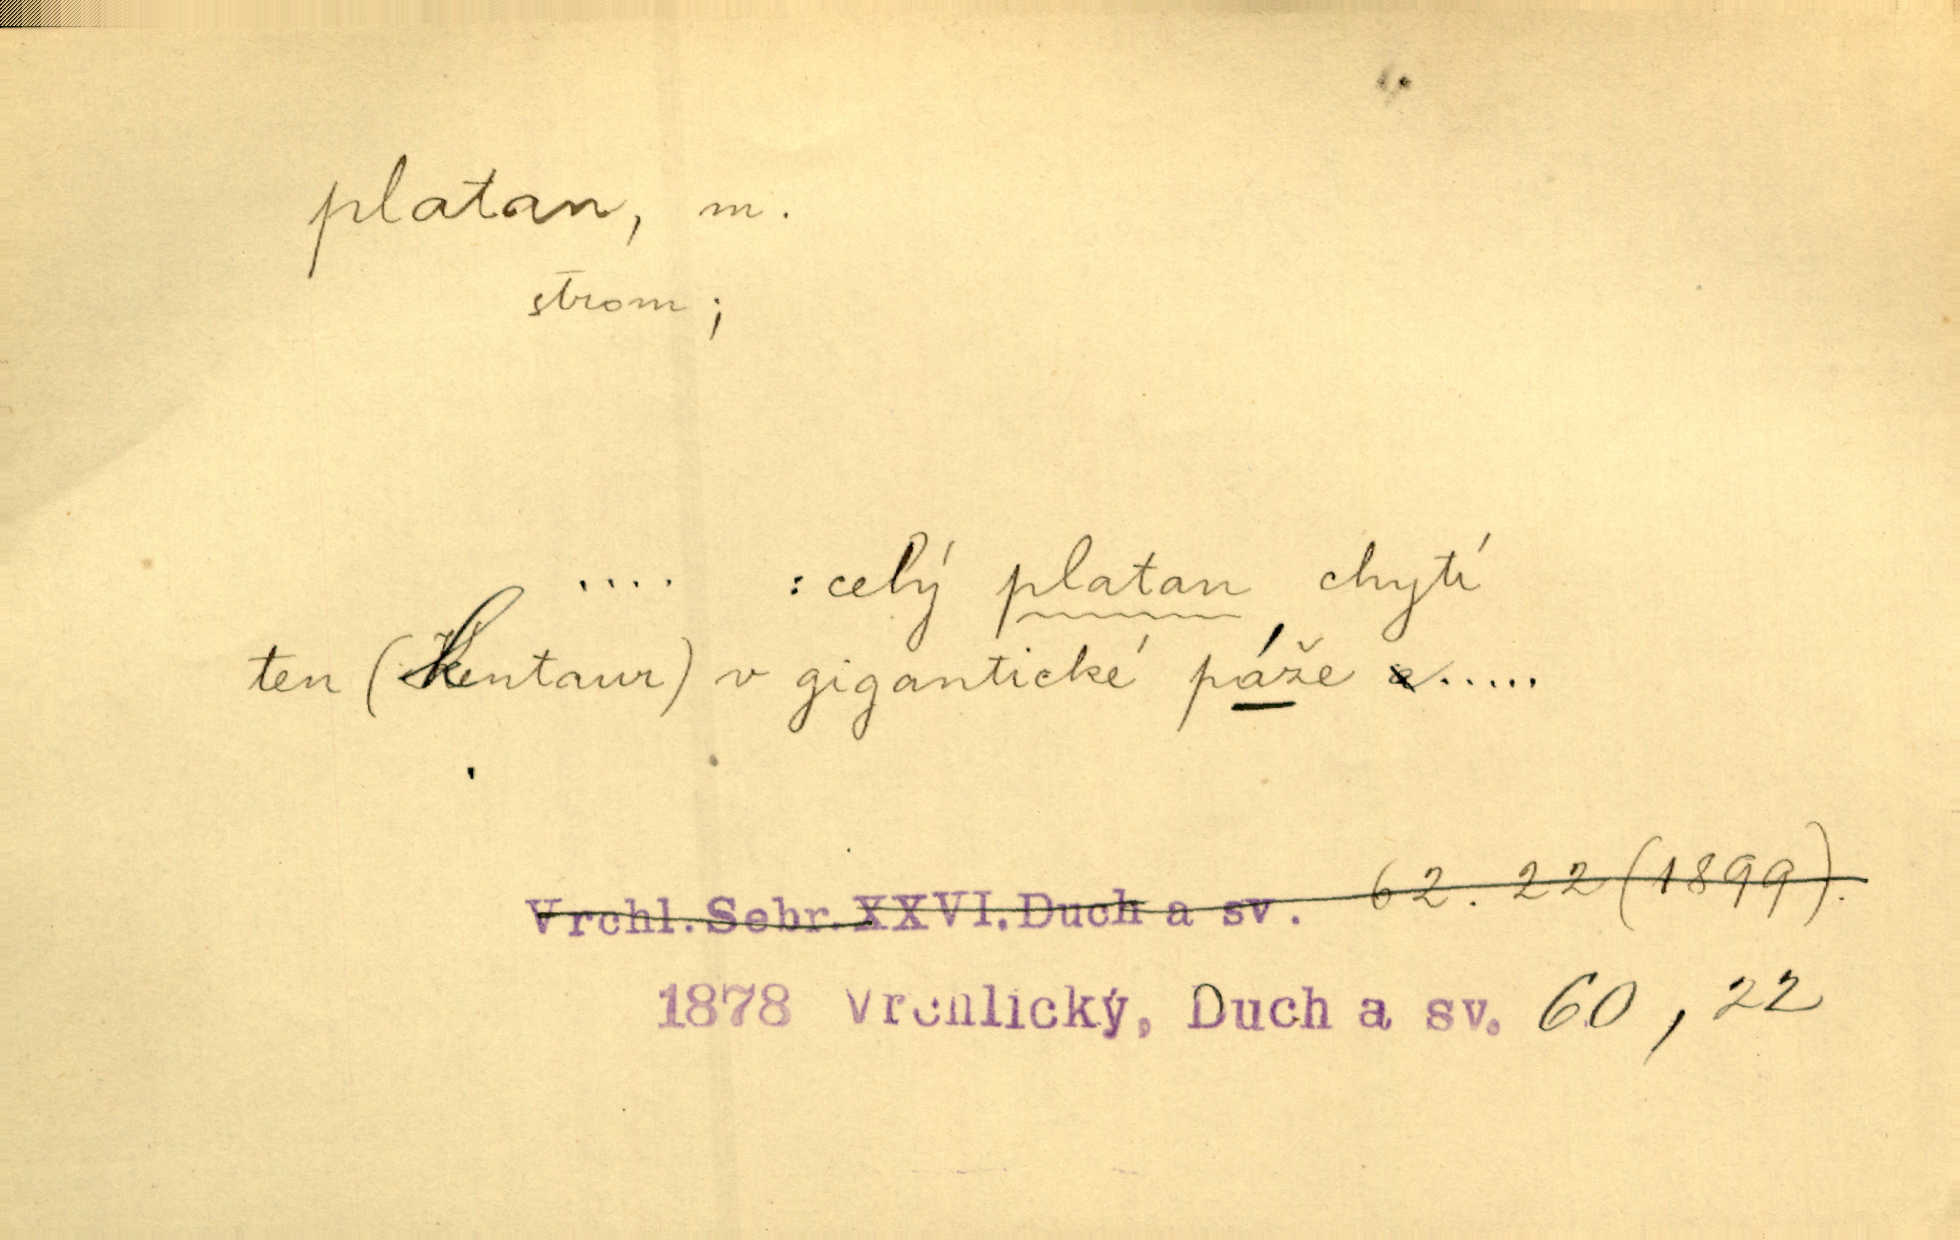 platan, m.
strom;
.... : celý platan chytí
ten (Kentaur) v gigantické páže .....
Vrchl. Sebr. XXVI. Duch a sv. 62. 22 (1899).
1878 Vrchlický, Duch a sv. 60, 22